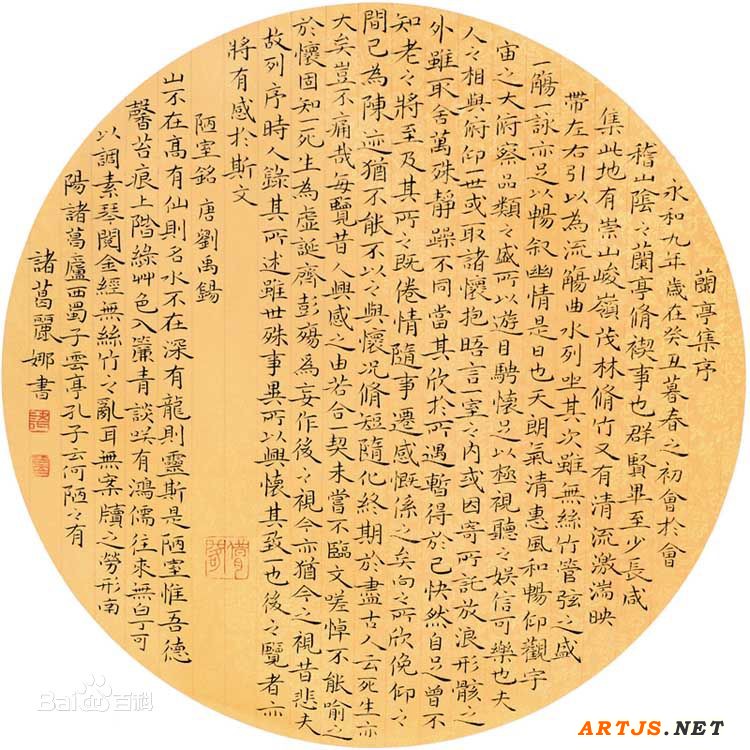 蘭亭集序
永和九年歲在癸丑暮春之初會於會
稽山陰之蘭亭脩禊事也群賢畢至少長咸
集此地有崇山峻嶺茂林脩竹又有清流激湍映
帶左右引以為流觴曲水列坐其次雖無絲竹管弦之盛
一觴一詠亦足以暢叙幽情是日也天朗氣清惠風和暢仰觀宇
宙之大俯察品類之盛所以遊目騁懷足以極視聽之娛信可樂也夫
人之相與俯仰一世或取諸懷抱晤言一室之內或因寄所託放浪形骸之
外雖取舍萬殊靜躁不同當其欣於所遇暫得於己快然自足曾不
知老之將至及其所之既倦情隨事遷感慨係之矣向之所欣俛仰之
間已為陳迹猶不能不以之興懷况脩短隨化終期於盡古人云死生亦
大矣豈不痛哉每覽昔人興感之由若合一契未嘗不臨文嗟悼不能喻之
於懷固知一死生為虛誕齊彭殤為妄作後之視今亦猶今之視昔悲夫
故列序時人錄其所述雖世殊事異所以興懷其致一也後之覽者亦
將有感於斯文
陋室銘 唐劉禹錫
山不在高有仙則名水不在深有龍則靈斯是陋室惟吾德
馨苔痕上階綠艸色入簾青談咲有鴻儒往來無白丁可
以調素琴閱金經無絲竹之亂耳無案牘之勞形南
陽諸葛廬西蜀子雲亭孔子云何陋之有
諸葛麗娜書
Baidu百科
ARTJS.NET